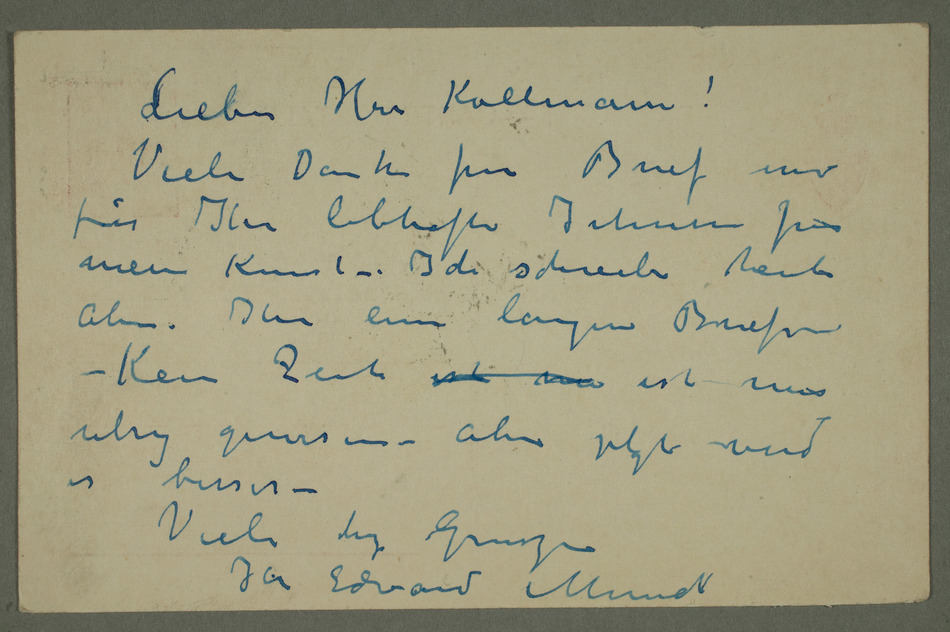 Lieber Herr Kollmann!
Viele Dank für Brief und
für Ihr lebhafte Interesse für
meine Kunst –. Ich schreibe heute
Abe. Ihn einen langen Brief
– Kein Zeit ist mir ist mir
ubrig gewesen – aber jetzt wird
es besser –
Viele hzg Grusze
Ihr Edvard Munch